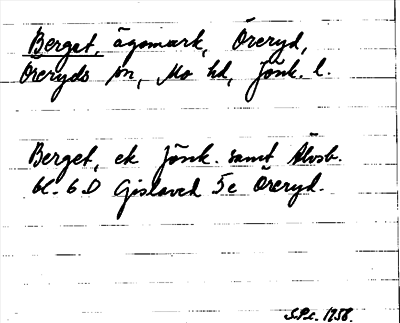 Berget, ägomark, Öreryd,
Öreryds sn, Mo hd, Jönk. l.
Berget, ek Jönk. samt Älvsb.
bl. 6 D Gislaved 5e Öreryd.
1958.